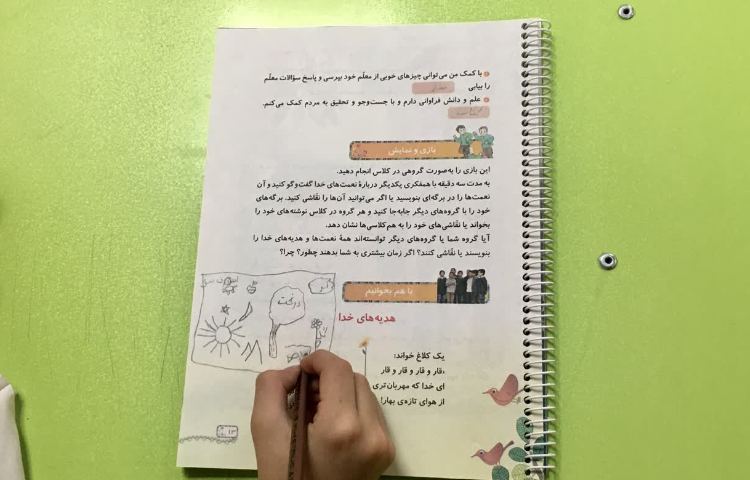 با کمک من می‌توانی چیزهای خوبی از معلّم خود بپرسی و پاسخ سؤالات معلّم
را بیابی
علم و دانش فراوانی دارم و با جست‌وجو و تحقیق به مردم کمک می‌کنم.
بازی و نمایش
این بازی را به‌صورت گروهی در کلاس انجام دهید.
به مدت سه دقیقه با همفکری یکدیگر دربارهٔ نعمت‌های خدا گفت‌وگو کنید و آن
نعمت‌ها را در برگه‌ای بنویسید یا اگر می‌توانید آن‌ها را نقّاشی کنید. برگه‌های
خود را با گروه‌های دیگر جابه‌جا کنید و هر گروه در کلاس نوشته‌های خود را
بخواند یا نقّاشی‌های خود را به هم‌کلاسی‌ها نشان دهد.
آیا گروه شما یا گروه‌های دیگر توانسته‌اند همهٔ نعمت‌ها و هدیه‌های خدا را
بنویسند یا نقّاشی کنند؟ اگر زمان بیشتری به شما بدهند چطور؟ چرا؟
با هم بخوانیم
هدیه‌های خدا
یک کلاغ خواند:
قار و قار و قار و قار
ای خدا که مهربان‌تری
از هوای تازه‌ی بهار!
درخت
ابر
۱۳